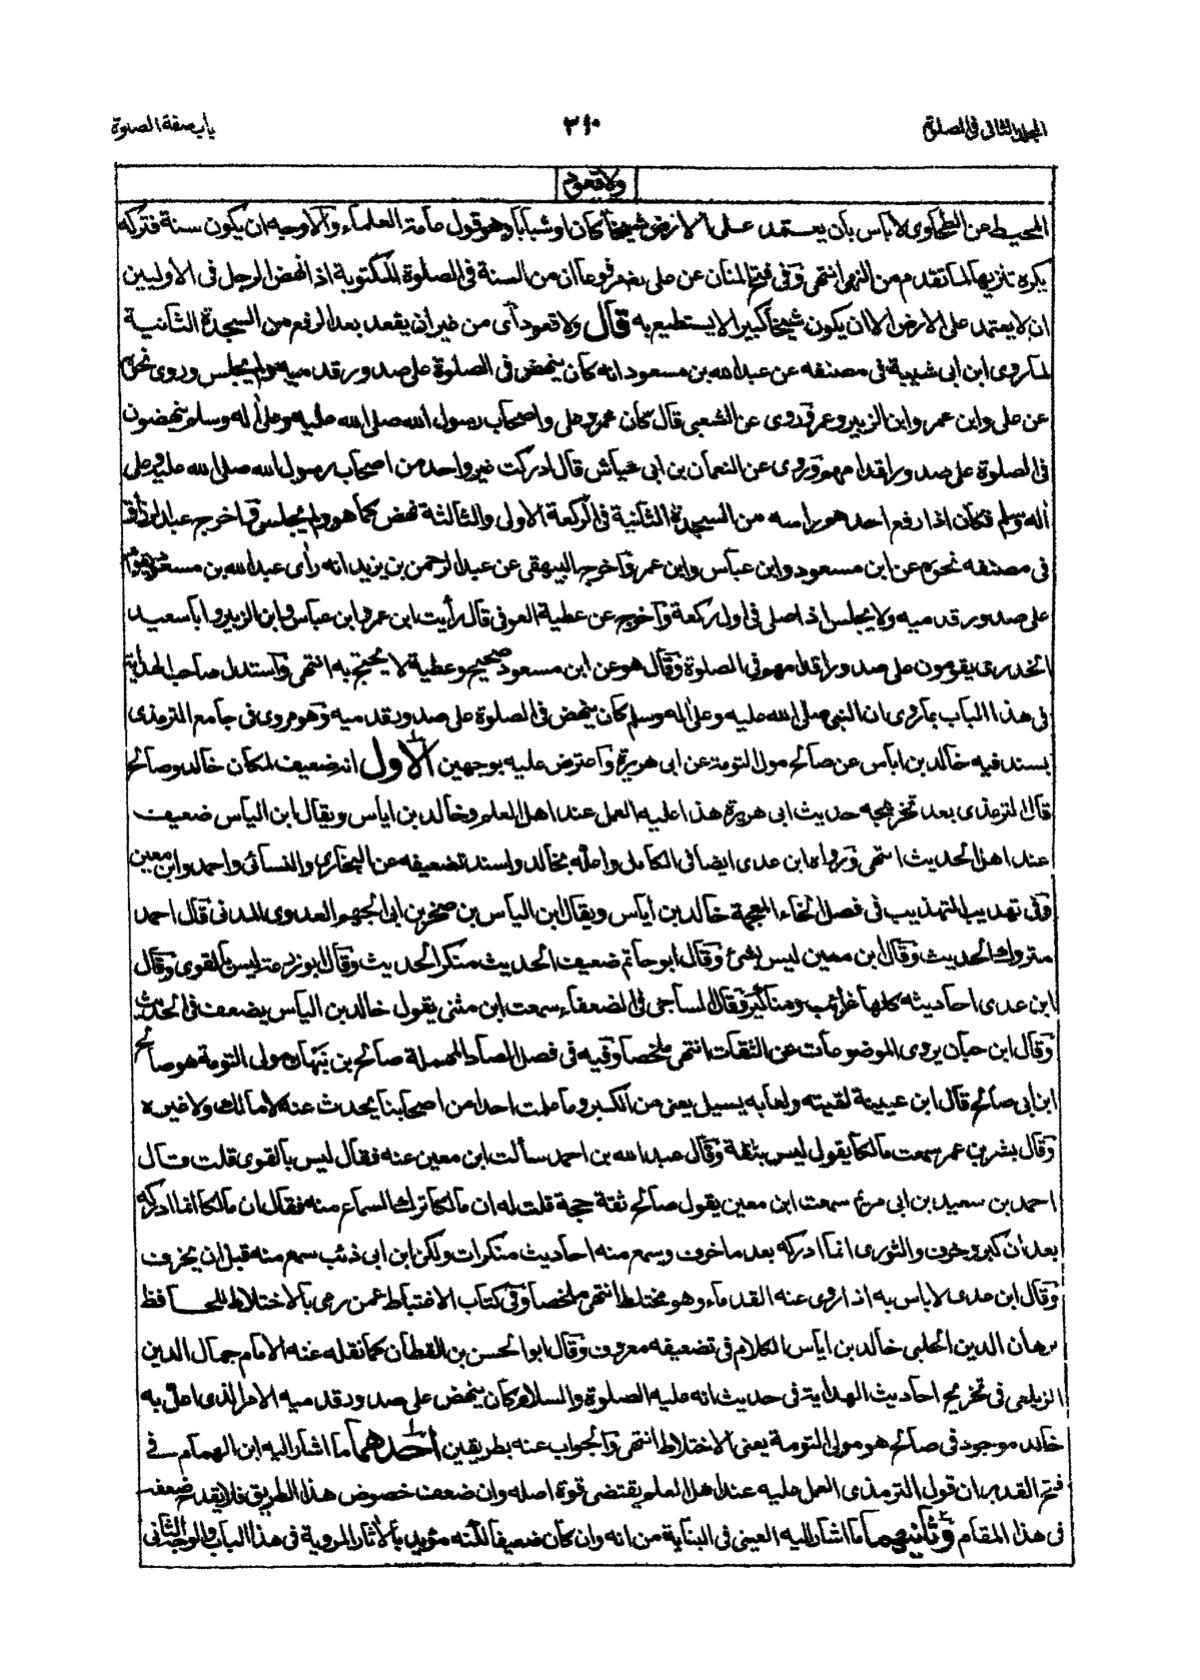 المجلد الثانى فى الصلوة
٢١٠
باب صفة الصلوة
ولا قعود
المحيط عن الطحاوى لا باس بان يعتمد على الارض شيخا كان او شبابا وهو قول عامة العلماء والاوجه ان يكون سنة فتركه
يكره تنزيها لما تقدم من النهى انتهى وفى فتح المنان عن على بعضه مرفوعا ان من السنة فى الصلوة المكتوبة اذا نهض الرجل فى الاوليين
ان لا يعتمد على الارض الا ان يكون شيخا كبيرا لا يستطيع به قال ولا قعود اى من غير ان يقعد بعد الرفع من السجدة الثانية
لما روى ابن ابى شيبة فى مصنفه عن عبد الله بن مسعود انه كان ينهض فى الصلوة على صدور قدميه ولم يجلس وروى نحوه
عن على وابن عمر وابن الزبير وعمر وروى عن الشعبى قال كان عمر وعلى واصحاب رسول الله صلى الله عليه وعلى اله وسلم ينهضون
فى الصلوة على صدور اقدامهم وروى عن النعمان بن ابى عياش قال ادركت غير واحد من اصحاب رسول الله صلى الله عليه وعلى
اله وسلم فكان اذا رفع احدهم راسه من السجدة الثانية فى الركعة الاولى والثالثة نهض كما هو ولم يجلس واخرج عبد الرزاق
فى مصنفه نحوه عن ابن مسعود وابن عباس وابن عمر واخرج البيهقى عن عبد الرحمن بن يزيد انه رأى عبد الله بن مسعود يقوم
على صدور قدميه ولا يجلس اذا صلى فى اول ركعة واخرج عن عطية العوفى قال رأيت ابن عمر وابن عباس وابن الزبير وابا سعيد
الخدرى يقومون على صدور اقدامهم فى الصلوة وقال هو عن ابن مسعود صحيح وعطية لا يحتج به انتهى واستدل صاحب الهداية
فى هذا الباب بما روى ان النبى صلى الله عليه وعلى اله وسلم كان ينهض فى الصلوة على صدور قدميه وهو مروى فى جامع الترمذى
بسند فيه خالد بن اياس عن صالح مولى التومة عن ابى هريرة واعترض عليه بوجهين الاول انه ضعيف لمكان خالد وصالح
قال الترمذى بعد تخريجه حديث ابى هريرة هذا عليه العمل عند اهل العلم وخالد بن اياس ويقال ابن الياس ضعيف
عند اهل الحديث انتهى ورواه ابن عدى ايضا فى الكامل واعله بخالد واسند تضعيفه عن البخارى والنسائى واحمد وابن معين
وفى تهذيب التهذيب فى فصل الخاء المعجمة خالد بن اياس ويقال ابن الياس بن صخر بن ابى الجهم العدوى المدنى قال احمد
متروك الحديث وقال ابن معين ليس بشئ وقال ابو حاتم ضعيف الحديث منكر الحديث وقال ابو زرعة ليس بالقوى وقال
ابن عدى احاديثه كلها غرائب ومناكير وقال الساجى فى الضعفاء سمعت ابن مثنى يقول خالد بن الياس يضعف فى الحديث
وقال ابن حبان يروى الموضوعات عن الثقات انتهى ملخصا وفيه فى فصل الصاد المهملة صالح بن نبهان مولى التومة هو صالح
ابن ابى صالح قال ابن عيينة لقيته ولعابه يسيل يعنى من الكبر وما علمت احدا من اصحابنا يحدث عنه لا مالك ولا غيره
وقال بشر بن عمر سمعت مالكا يقول ليس بثقة وقال عبد الله بن احمد سألت ابن معين عنه فقال ليس بالقوى قلت وقال
احمد بن سعيد بن ابى مريم سمعت ابن معين يقول صالح ثقة حجة قلت له ان مالكا ترك السماع منه فقال ان مالكا انما ادركه
بعد ان كبر وخرف والثورى انما ادركه بعد ما خرف وسمع منه احاديث منكرات ولكن ابن ابى ذئب سمع منه قبل ان يخرف
وقال ابن عدى لا باس به اذا روى عنه القدماء وهو مختلط انتهى ملخصا وفى كتاب الاغتباط عمن رمى بالاختلاط للحافظ
برهان الدين الحلبى خالد بن اياس الكلام فى تضعيفه معروف وقال ابو الحسن بن القطان كما نقله عنه الامام جمال الدين
الزيلعى فى تخريج احاديث الهداية فى حديث انه عليه الصلوة والسلام كان ينهض على صدور قدميه الامر الذى اعل به
خالد موجود فى صالح هو مولى التومة يعنى الاختلاط انتهى والجواب عنه بطريقين احدهما ما اشار اليه ابن الهمام فى
فتح القدير ان قول الترمذى العمل عليه عند اهل العلم يقتضى قوة اصله وان ضعف خصوص هذا الطريق فلا يقدح ضعفه
فى هذا المقام وثانيهما ما اشار اليه العينى فى البناية من انه وان كان ضعيفا لكنه مؤيد بالاثار المروية فى هذا الباب والوجه الثانى